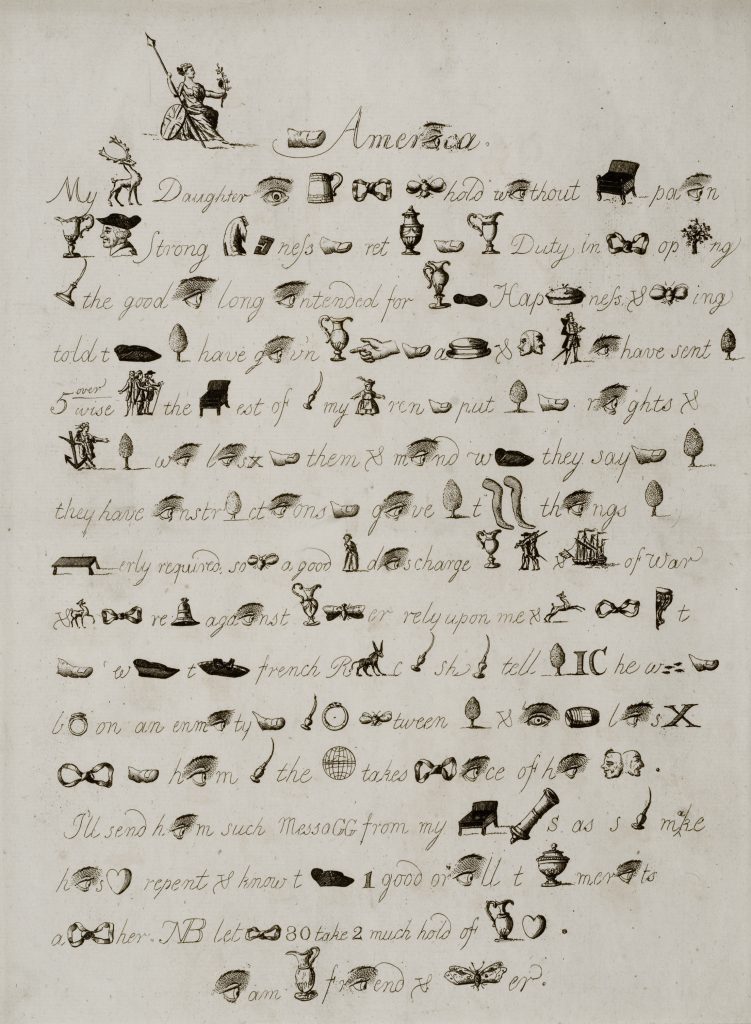 Amer ca.
My Daughter hold w thout pa n
Strong ness ret Duty in op ng
the good long ntended for Hap ness. & ing
told t have g v'n a & have sent
5 over/wise the est of my ren put r ghts &
w l s x them & m nd w they say
they have nstr ct ons g ve t th ngs
erly required, so a good d scharge & of War
& re aga nst er rely upon me & t
' w t french R c sh tell IC he w
b on an enm ty tween & l s X
h m the takes ce of h .
I'll send h m such MessaGG from my s. as s m ke
h s repent & know t 1 good or ll t mer ts
a her. NB let 80 take 2 much hold of .
am fr end & er.